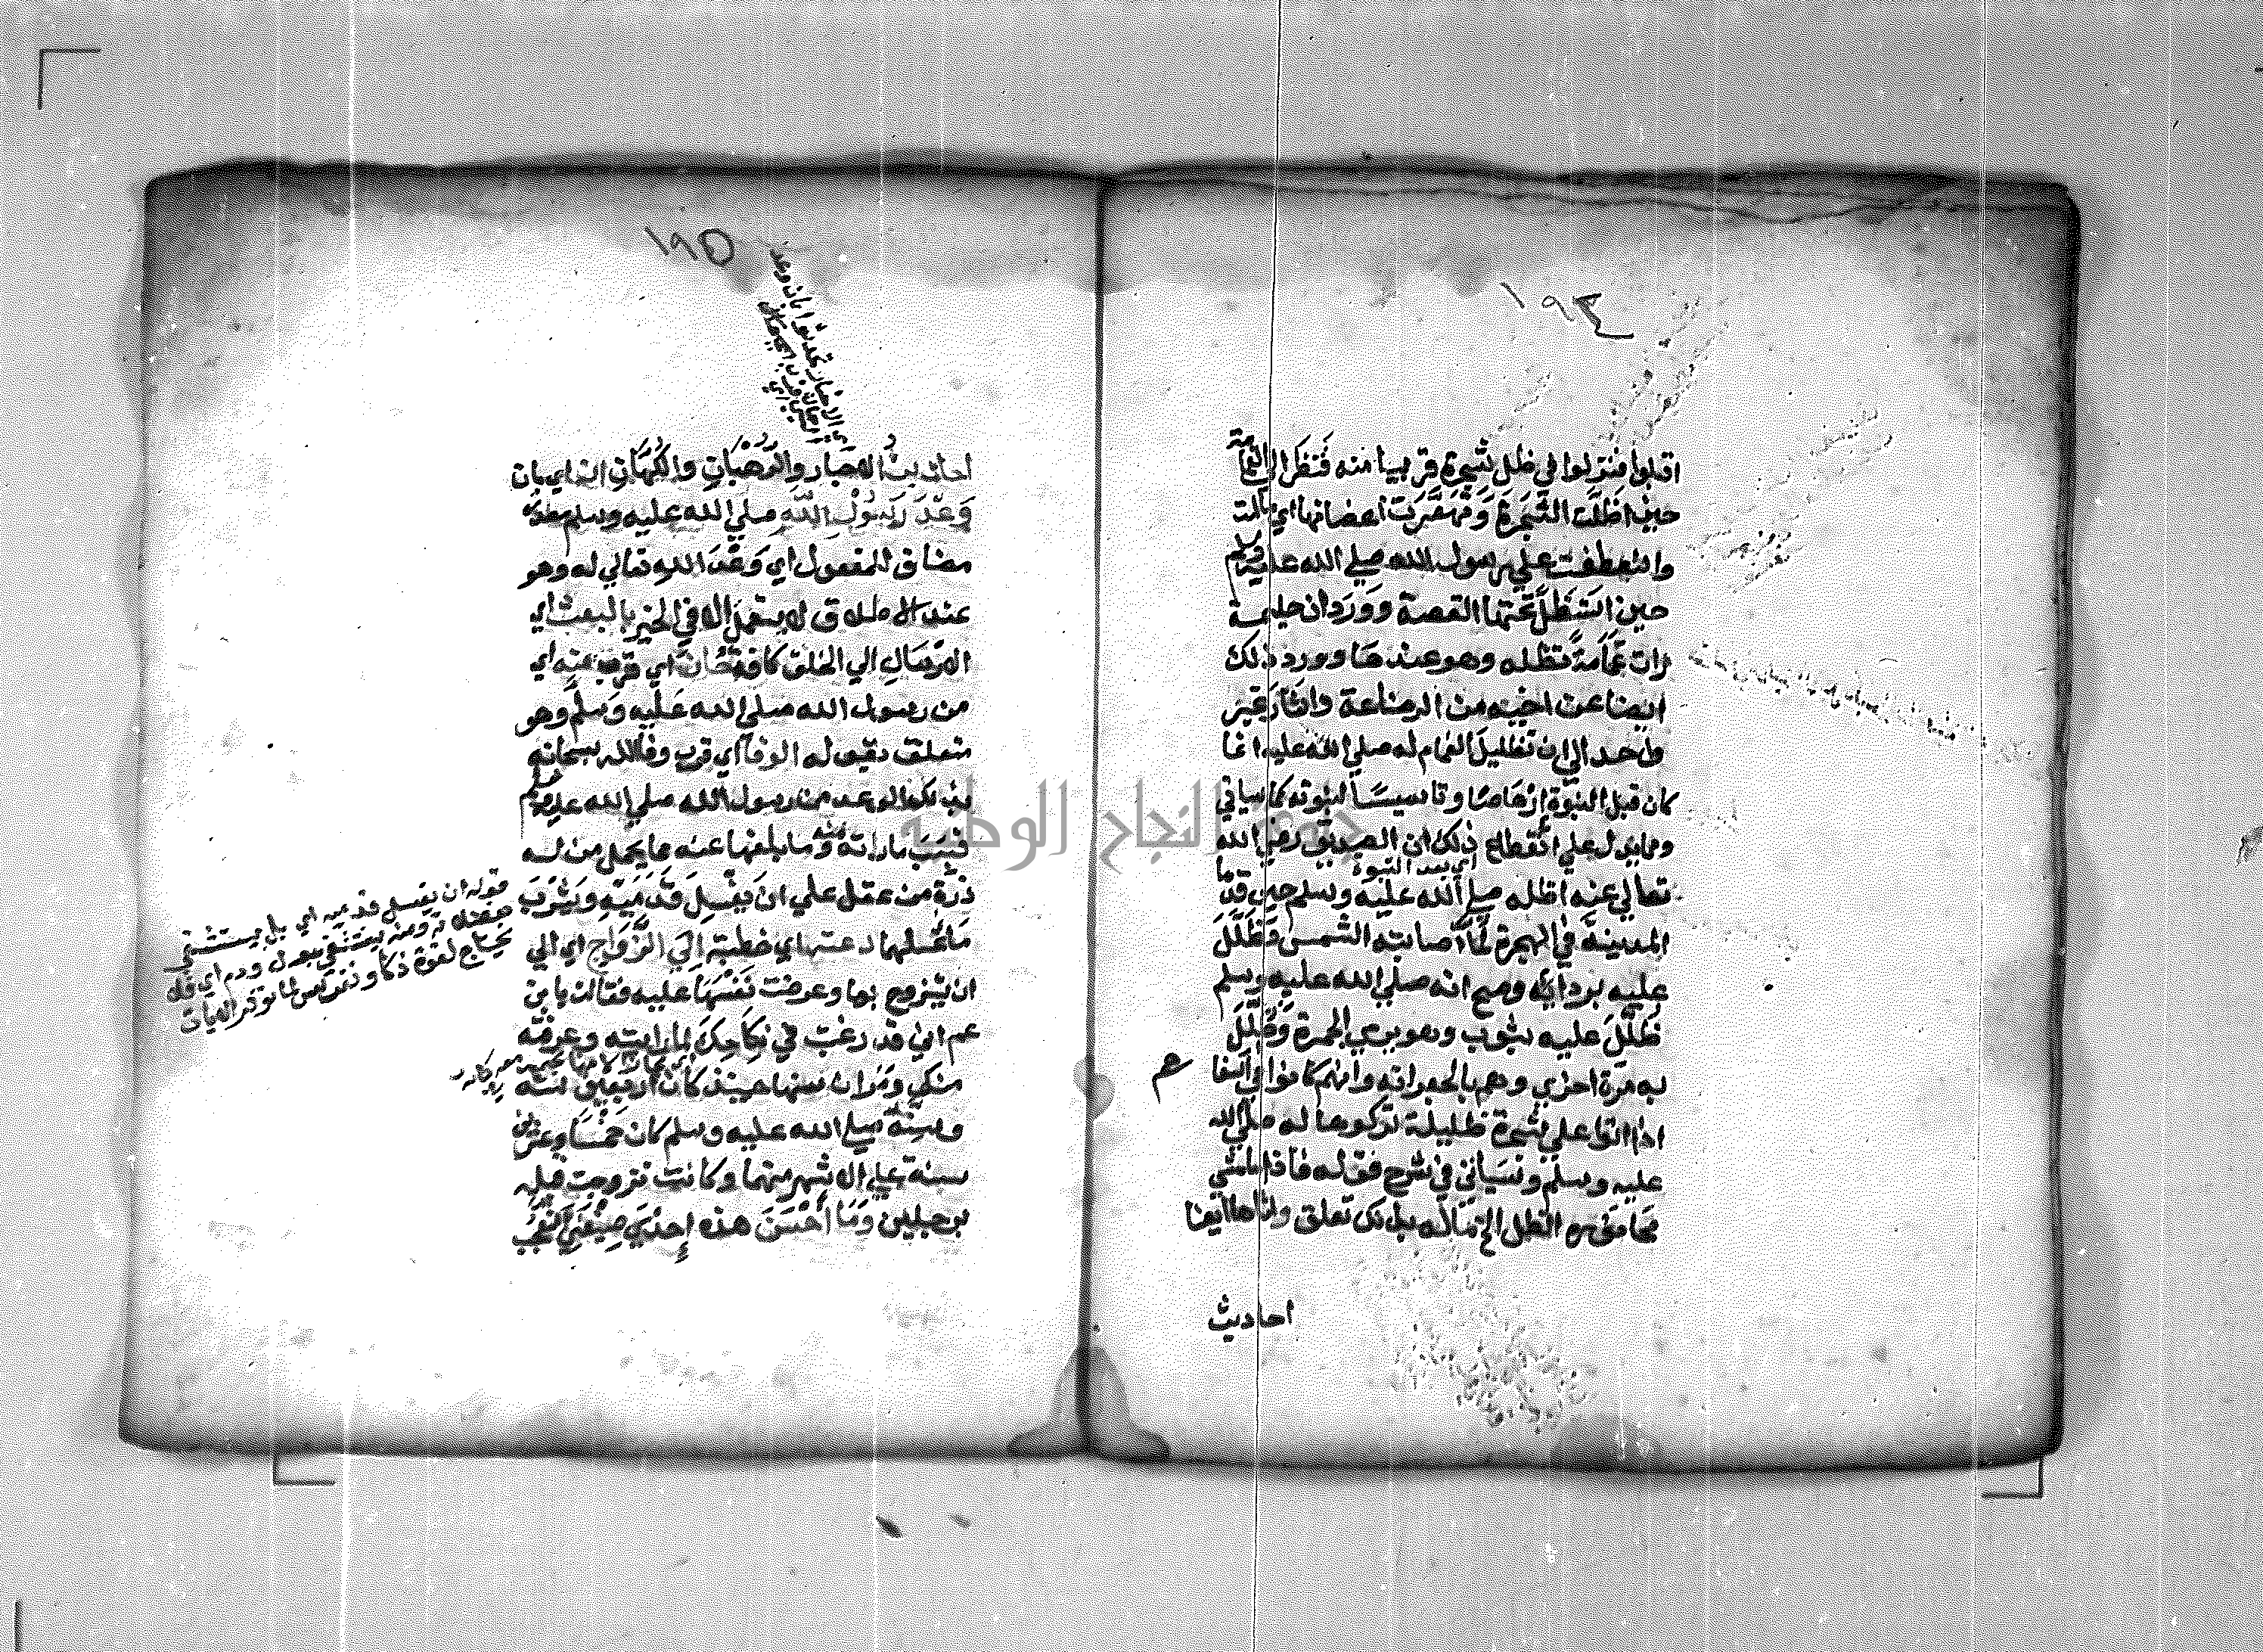 ١٩٤
اقبلوا فنزلوا في ظل شجرة قريبا منه فَنظَر الي الغمامة
حين اظلّت الشجرة وَتَهَصَّرَت اغصانها اي مالت
وانعطفت علي رسول الله صلي الله عليه وسلم
حين استظل تحتها القصة وورد ان حليمة
رات غَمَامةً تظله وهو عندها وورد ذلك
ايضا عن اخيه من الرضاعة واشار غير
واحد الي ان تظليل الغمام له صلي الله عليه انما
كان قبل النبوّة ارهاصًا وتاسيسًا لنبوته كما سياتي
ومما يدل علي انقطاع ذلك ان الصديق رضي الله
اي بعد النبوة
تعالي عنه اظله صلي الله عليه وسلم حين قدما
المدينة في الهجرة لمّا اصابته الشمس وظلّل
عليه بردايه وصح انه صلي الله عليه وسلم
ظلّل عليه بثوب وهو يرمي الجمرة وظُلّل
به مرّة اخري وهم بالجعرانه وانهم كانوا في اسفا
اذا اتوا علي شجرة ظليلة تركوها له صلي الله
عليه وسلم وسياتي في شرح قوله فاذا مامشي
محا الظل الخ ماله بذلك تعلق واتاها ايضا
احاديث
١٩٥
احاديثُ الاحبار والرُهْبَانِ والكُهَّانِ ان اي بان
وَعْدَ رَسُولِ اللّهِ صلي الله عليه وسلم مصدر
مضاف للمفعول اي وَعْدَ الله تعالي له وهو
عند الاطلاق لا يستعمل الا في الخير بالبعث اي
الارسال الي الخلق كافة حَانَ اي قرب منه اي
من رسول الله صلي الله عَلَيه وَسَلّم وهو
متعلق بقوله الوفا اي قرب وفا الله سبحانه
بذلك الوعد من رسول الله صلي الله عليه وسلم
فبسبب ما راته منه وما بلغها عنه مما يحمل من له
ذرّة من عقل علي انْ يَغْسِلَ قَدَمَيْهِ وَيَشْرَبَ
مَا غسلهما دعته اي خطبته اِلَي الزَّوَاجِ اي الي
ان يتزوج بها وعرضت نَفْسَهَا عليه فقالت يا بن
عم اني قد رغبت في نِكَاحِكَ لما رايته وعرفته
منك وَمَرَّ ان سنها حينئذ كان اربعين سنة
وسِنّه صلي الله عليه وسلم كان خَمْسًا وعشرين
سنة علي الاشهر منهما وكانت تزوجت قبله
برجلين وَمَا أَحْسَنَ هذه إحْدَي صِيْغَتَي التعجب
قوله ان يغسل قدميه اي بل يستشفي
يحتاج لقوة ذكا وتفرس لما توفر الغيات